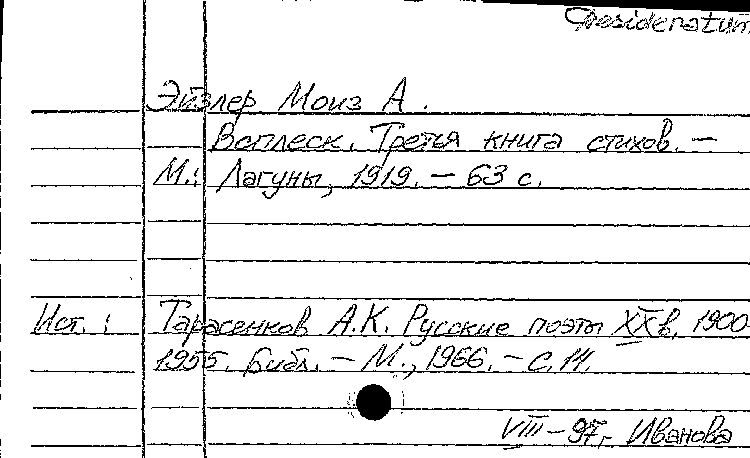 Desideratum
Эйзлер Моиз А.
Всплеск. Третья книга стихов. –
М.: Лагуны, 1919. – 63 с.
Ист.: Тарасенков А.К. Русские поэты XX в. 1900
1955. Библ. – М., 1966. – С. 14.
VIII – 97г. Иванова